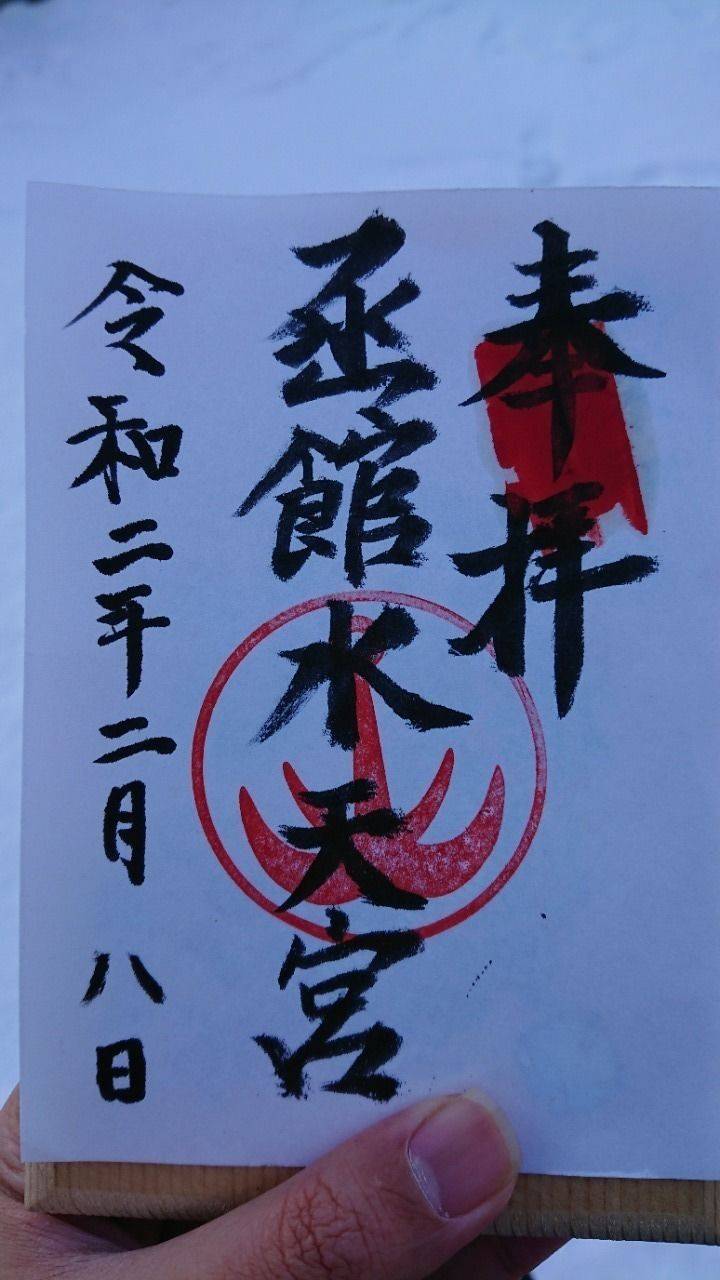 奉拝
函館水天宮
令和二年二月八日